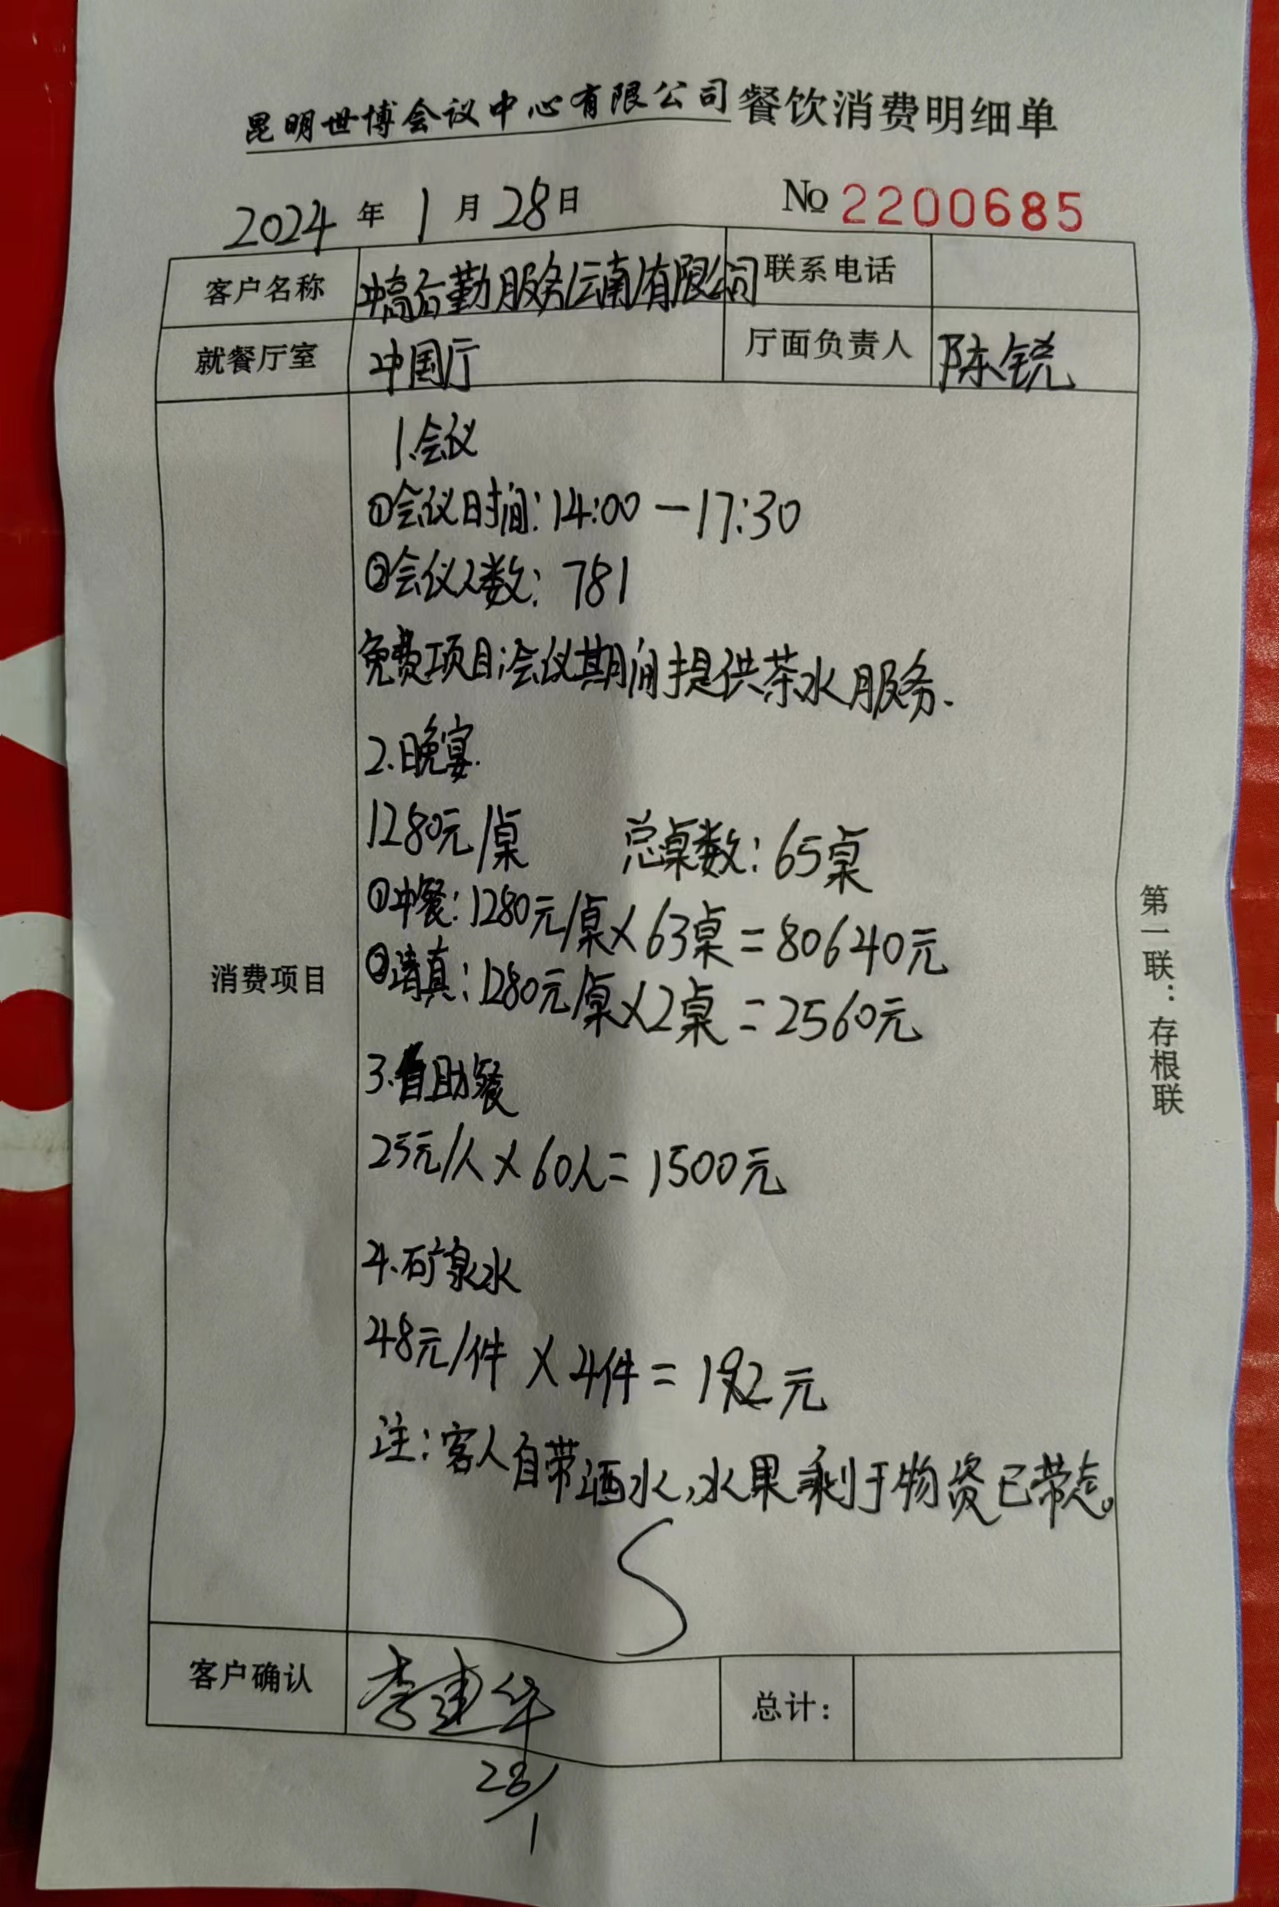 昆明世博会议中心有限公司餐饮消费明细单
2024年1月28日 No 2200685
客户名称 中高后勤服务(云南)有限公司 联系电话
就餐厅室 中国厅 厅面负责人 陈锐
消费项目
1.会议
①会议时间:14:00-17:30
②会议人数:781
免费项目:会议期间提供茶水服务.
2.晚宴.
1280元/桌 总桌数:65桌
①中餐:1280元/桌×63桌=80640元
②清真:1280元/桌×2桌=2560元
3.自助餐
25元/人×60人=1500元
4.矿泉水
48元/件×4件=192元
注:客人自带酒水,水果剩于物资已带走。
客户确认 李建华 总计:
28/1
第一联:存根联